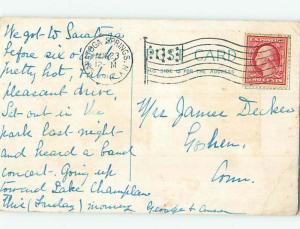 We got to Saratoga
before six o'
pretty hot, but a
pleasant drive,
Sat out in the
park last night
and heard a band
concert. Going up
toward Lake Champlain
this (Friday) morning
George & 
SARATOGA SPRINGS, N.
CARD
THIS SIDE IS FOR THE ADDRESS
Mrs James Decker
Goshen,
Conn.